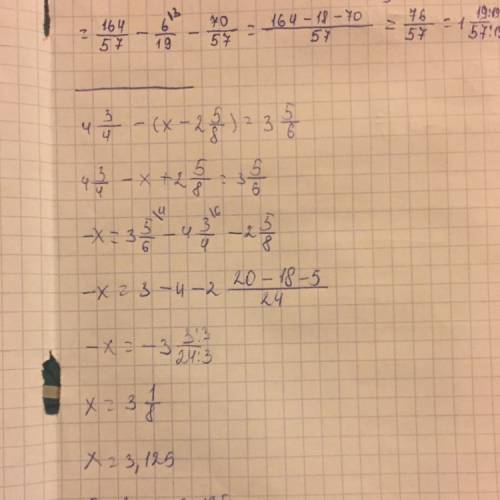 = 164/57 - 6/19 \3 - 70/57 = (164 - 18 - 70)/57 = 76/57 = 1 19:19/57:19
4 3/4 - (x - 2 5/8) = 3 5/6
4 3/4 - x + 2 5/8 = 3 5/6
-x = 3 5/6 \4 - 4 3/4 \6 - 2 5/8
-x = 3 - 4 - 2 (20 - 18 - 5)/24
-x = -3 3:3/24:3
x = 3 1/8
x = 3,125